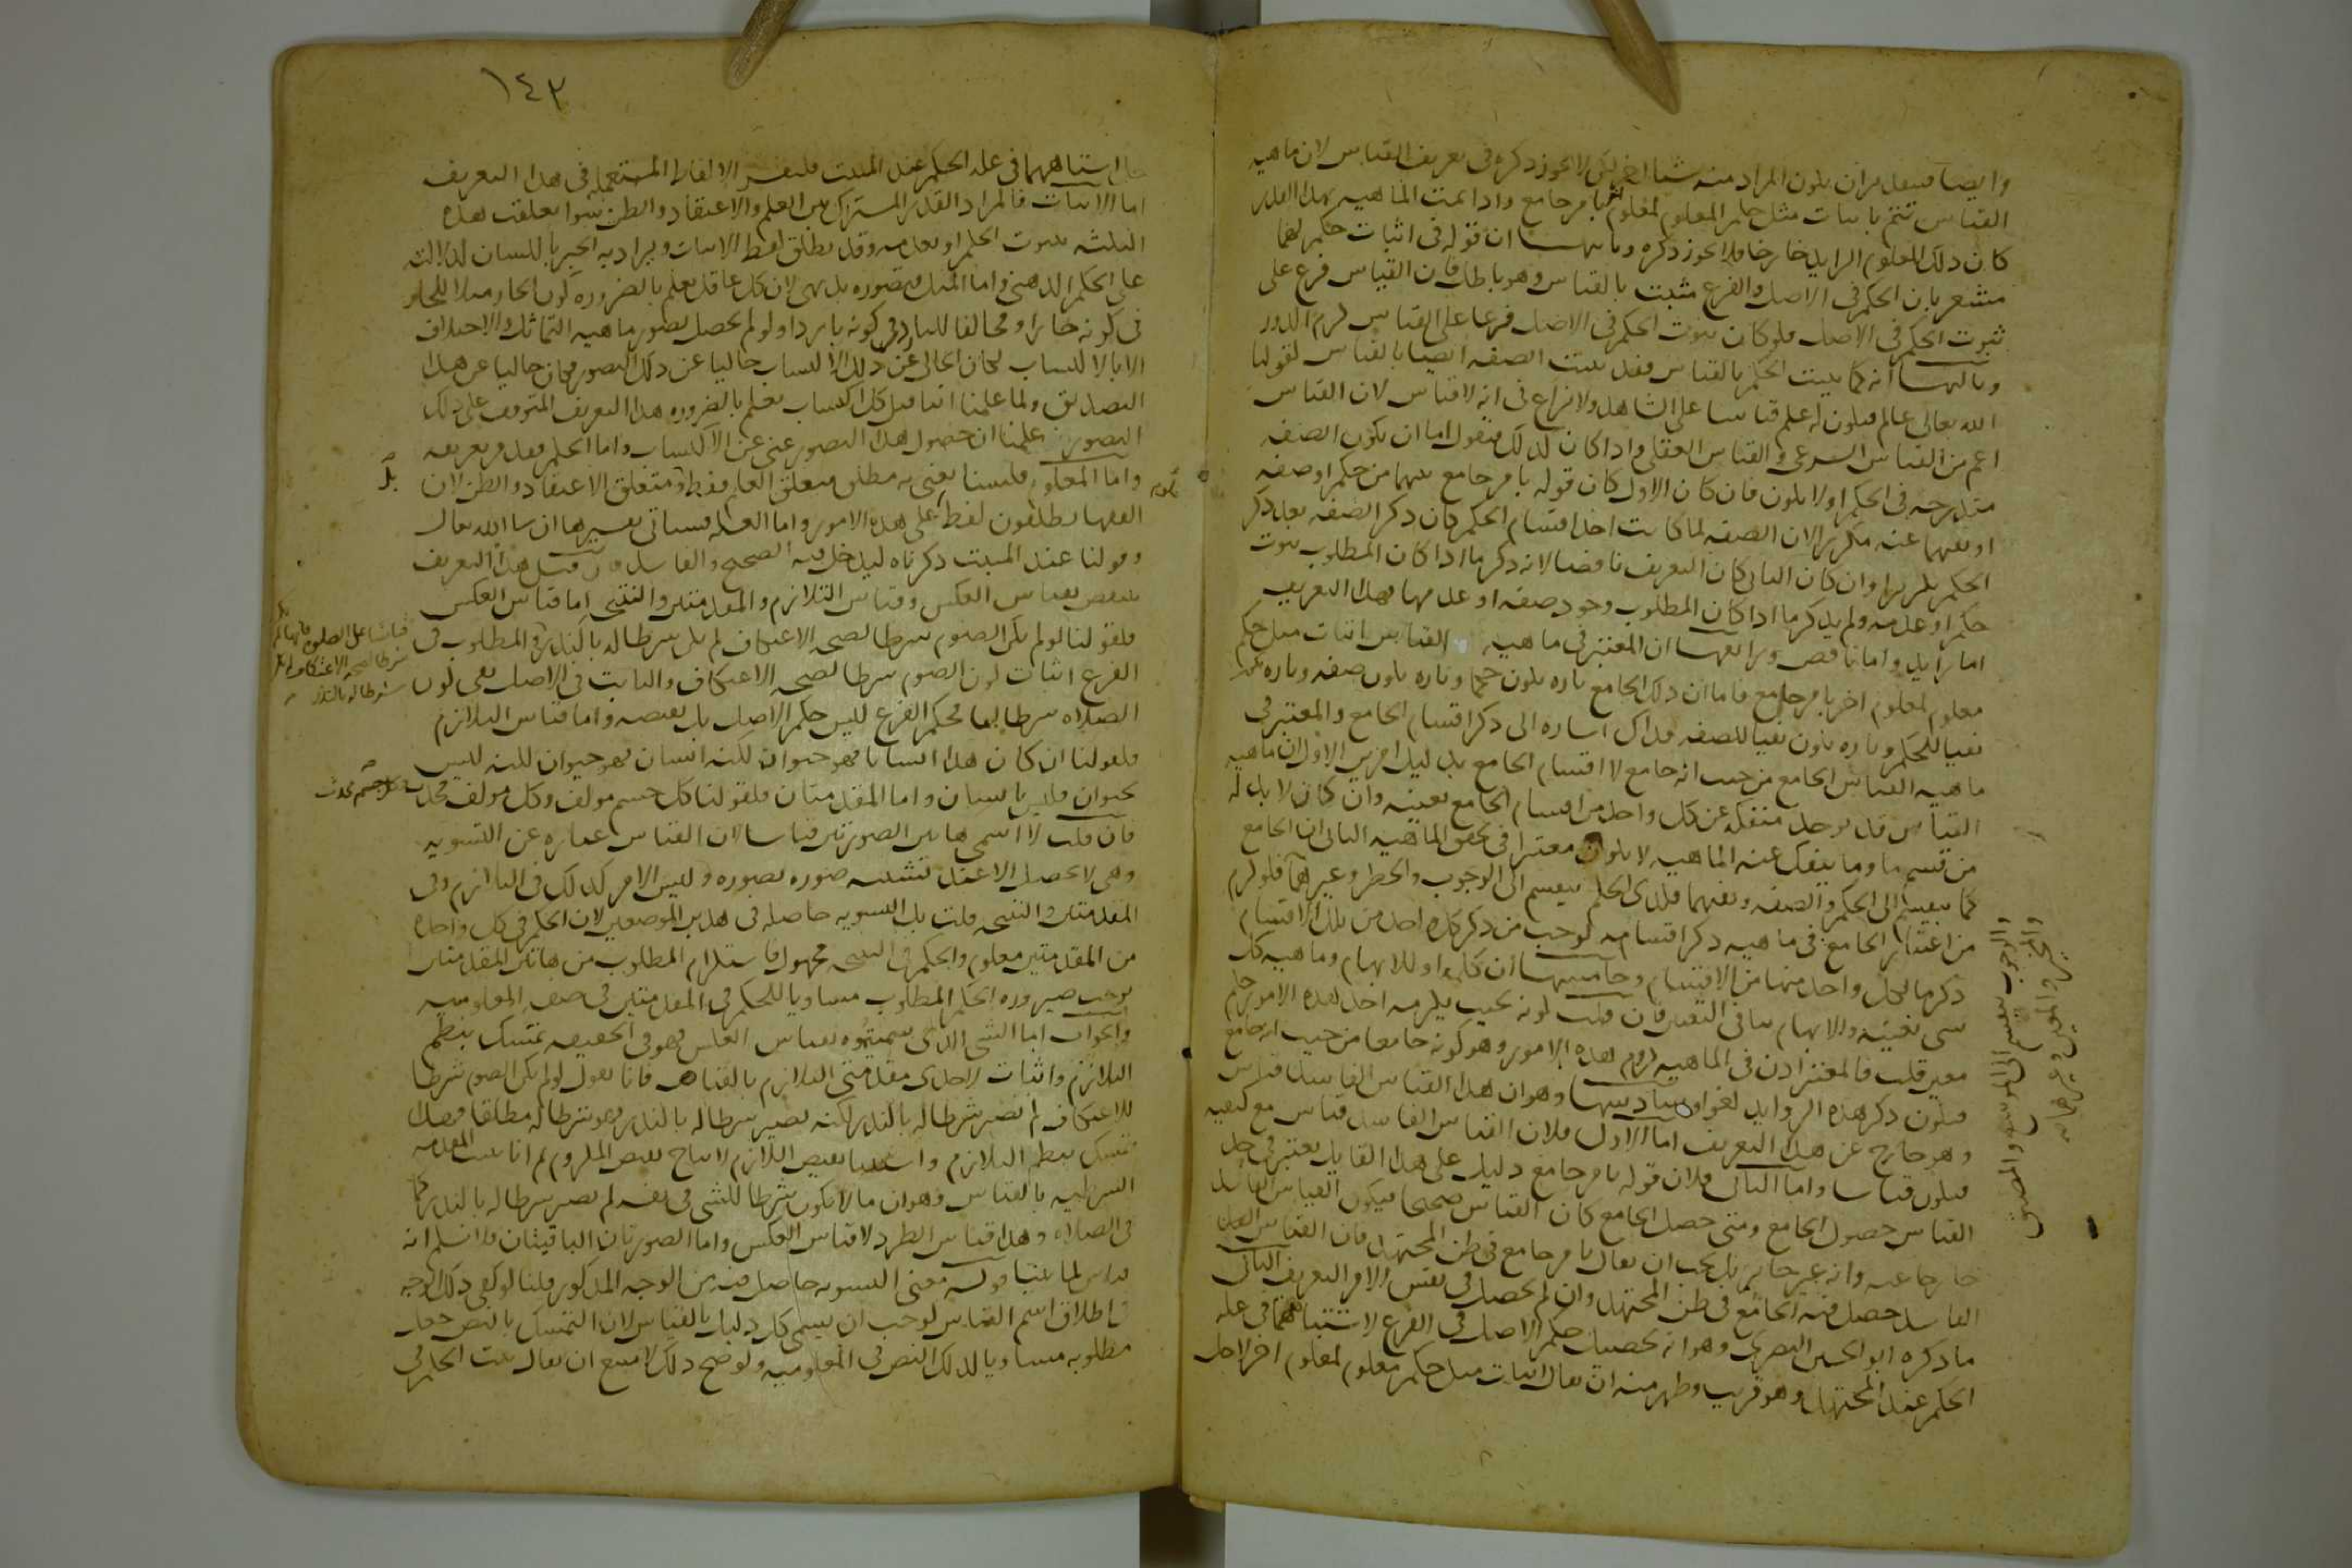 وايضا فبتقدير ان يكون المراد منه شيئا اخر لكن لا يجوز ذكره في تعريف القياس لان ماهيه
القياس تتم باثبات مثل حكم المعلوم لمعلوم اخر بامر جامع واذا تمت الماهيه بهذا القدر
كان ذلك المعلوم الزايد خارجا فلا يجوز ذكره وثانيها ان قوله في اثبات حكم لهما
مشعر بان الحكم في الاصل والفرع مثبت بالقياس وهو باطل فان القياس فرع على
ثبوت الحكم في الاصل فلو كان ثبوت الحكم في الاصل فرعا على القياس لزم الدور
وثالثها انه كما يثبت الحكم بالقياس فقد يثبت الصفه ايضا بالقياس كقولنا
الله تعالى عالم فيكون له علم قياسا على الشاهد ولا نزاع في انه لا قياس لان القياس
اعم من القياس الشرعي والقياس العقلي واذا كان كذلك فنقول اما ان يكون الصفه
مندرجه في الحكم او لا يكون فان كان الاول كان قوله بامر جامع بينهما من حكم او صفه
او نفيهما عنه مكررا لان الصفه لما كانت احد اقسام الحكم كان ذكر الصفه بعد ذكر
الحكم تكريرا وان كان الثاني كان التعريف ناقصا لانه ذكر ما اذا كان المطلوب ثبوت
حكم او عدمه ولم يذكر ما اذا كان المطلوب وجود صفه او عدمها فهذا التعريف
اما زايد واما ناقص ورابعها ان المعتبر في ماهيه القياس اثبات مثل حكم
معلوم لمعلوم اخر بامر جامع فاما ان ذلك الجامع تاره يكون حكما وتاره يكون صفه وتاره يكون
نفيا للحكم وتاره يكون نفيا للصفه فذاك اشاره الى ذكر اقسام الجامع والمعتبر في
ماهيه القياس الجامع من حيث انه جامع لا اقسام الجامع بدليل امرين الاول ان ماهيه
القياس قد توجد منفكه عن كل واحد من اقسام الجامع بعينه وان كان لا بد له
من قسم ما وما ينفك عنه الماهيه لا يكون معتبرا في تحقق الماهيه الثاني ان الجامع
كما ينقسم الى الحكم والصفه ونفيهما فكذى الحكم ينقسم الى الوجوب والحظر وغيرهما فلو لزم
من اعتبار الجامع في ماهيه ذكر اقسامه لوجب من ذكر كل واحد من تلك الاقسام
ذكر ما لكل واحد منها من الاقسام وخامسها ان كلمه او للابهام وماهيه كل
شي معينه والابهام ينافي التعيين فان قلت كونه بحيث يلزمه احد هذه الامور حكم
معين قلت فالمعتبر اذن في الماهيه لزوم هذه الامور وهو كونه جامعا من حيث انه جامع
فيكون ذكر هذه الزوايد لغوا وسادسها وهو ان هذا القياس الفاسد قياس
وهو خارج عن هذا التعريف اما الاول فلان القياس الفاسد قياس مع كيفيه
فيكون قياسا واما الثاني فلان قوله بامر جامع دليل على هذا القايل يعتبر في حد
القياس حصول الجامع ومتى حصل الجامع كان القياس صحيحا فيكون القياس الفاسد
خارجا عنه وانه غير جايز بل يجب ان يقال بامر جامع في ظن المجتهد فان القياس
الفاسد حصل فيه الجامع في ظن المجتهد وان لم يحصل في نفس الامر التعريف الثاني
ما ذكره ابو الحسين البصري وهو انه تحصيل حكم الاصل في الفرع لاشتباههما في عله
الحكم عند المجتهد وهو قريب وظهر منه ان يقال اثبات مثل حكم معلوم لمعلوم اخر لاجل
١٤٣
اشتباههما في عله الحكم عند المثبت فلنفسر الالفاظ المستعمله في هذا التعريف
اما الاثبات فالمراد القدر المشترك بين العلم والاعتقاد والظن سوا تعلقت هذه
الثلثه بثبوت الحكم او بعدمه وقد يطلق لفظ الاثبات ويراد به الخبر باللسان لدلالته
على الحكم الذهني واما المثل فتصوره بديهي لان كل عاقل يعلم بالضروره كون الحار مثلا للحار
في كونه حارا ومخالفا للبارد في كونه باردا ولو لم يحصل تصور ماهيه التماثل والاختلاف
الا بالاكتساب لكان الخالي عن ذلك الاكتساب خاليا عن ذلك التصور فكان خاليا عن هذا
التصديق ولما علمنا انا قبل كل اكتساب نعلم بالضروره هذا التعريف المتوقف على ذلك
التصور علمنا ان حصول هذا التصور غني عن الاكتساب واما الحكم فقد مر تعريفه
واما المعلوم فلسنا نعني به مطلق متعلق العلم فقط ومتعلق الاعتقاد والظن لان
الفقها يطلقون لفظ على هذه الامور واما العله فسياتي تفسيرها ان شا الله تعالى
وقولنا عند المثبت ذكرناه ليدخل فيه الصحيح والفاسد فان قيل هذا التعريف
ينتقض بقياس العكس وقياس التلازم والمقدمتين والنتيجه اما قياس العكس
فلقولنا لو لم يكن الصوم شرطا لصحه الاعتكاف لم يكن شرطا له بالنذر والمطلوب في
الفرع اثبات كون الصوم شرطا لصحه الاعتكاف والثابت في الاصل نفي كون
الصلاه شرطا لها فحكم الفرع ليس حكم الاصل بل نقيضه واما قياس التلازم
فلقولنا ان كان هذا انسانا فهو حيوان لكنه انسان فهو حيوان لكنه ليس
بحيوان فليس بانسان واما المقدمتان فلقولنا كل جسم مولف وكل مولف محدث
فكل جسم محدث
فان قلت لا اسمى هاتين الصورتين قياسا لان القياس عباره عن التسويه
وهي لا تحصل الا عند تشبيه صوره بصوره وليس الامر كذلك في التلازم وفي
المقدمتين والنتيجه قلت بل التسويه حاصله في هذين الموضعين لان الحكم في كل واحده
من المقدمتين معلوم والحكم في النتيجه مجهول فاستلزام المطلوب من هاتين المقدمتين
يوجب صيروره الحكم المطلوب مساويا للحكم في المقدمتين في صفه المعلوميه
والجواب اما الشي الذي سميتموه بقياس العكس فهو في الحقيقه تمسك بنظم
التلازم واثبات لاحدى مقدمتي التلازم بالقياس فانا نقول لو لم يكن الصوم شرطا
للاعتكاف لم يصر شرطا له بالنذر لكنه يصير شرطا له بالنذر فهو شرط له مطلقا فهذا
تمسك بنظم التلازم واستثنا نقيض اللازم لانتاج نقيض الملزوم ثم انا نثبت المقدمه
الشرطيه بالقياس وهو ان ما لا يكون شرطا للشي في نفسه لم يصر شرطا له بالنذر كما
في الصلاه وهذا قياس الطرد لا قياس العكس واما الصورتان الباقيتان فلا نسلم انه
قياس لما بينا قوله معنى التسويه حاصل فيه من الوجه المذكور قلنا لو كفى ذلك الوجه
في اطلاق اسم القياس لوجب ان يسمى كل دليل بالقياس لان التمسك بالنص جعل
مطلوبه مساويا لذلك النص في المعلوميه ولو صح ذلك لامتنع ان يقال ثبت الحكم في